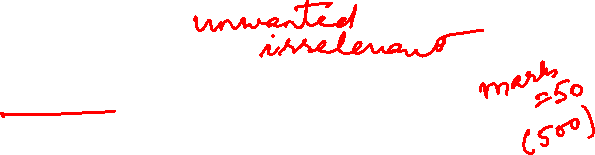 unwanted
irrelevant
marks
=50
(500)